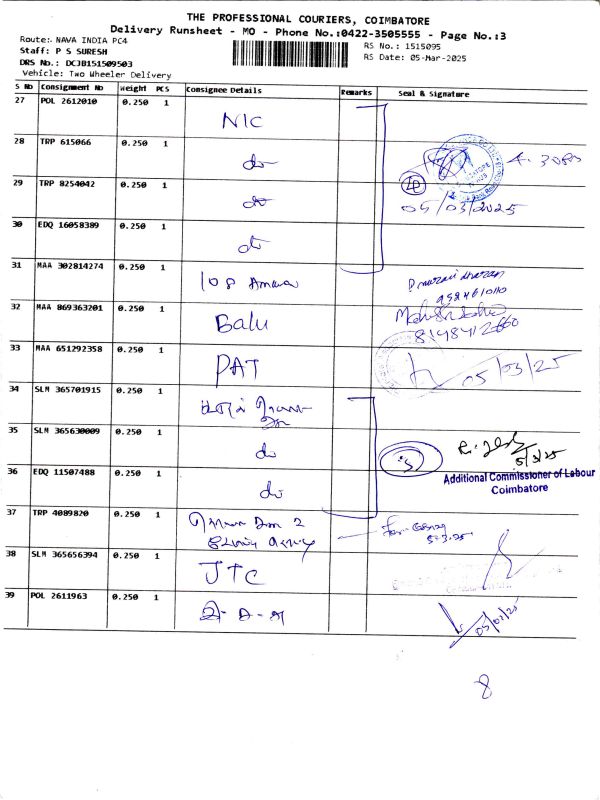 THE PROFESSIONAL COURIERS, COIMBATORE
Delivery Runsheet - MO - Phone No.:0422-3505555 - Page No.:3
Route:- NAVA INDIA PC4
RS No.: 1515095
Staff: P S SURESH
RS Date: 05-Mar-2025
DRS No.: DCJB151509503
Vehicle: Two Wheeler Delivery
S No Consignment No Weight PCS Consignee Details Remarks Seal & Signature
27 POL 2612010 0.250 1 NIC
28 TRP 615066 0.250 1 do
29 TRP 8254042 0.250 1 do
05/03/2025
30 EDQ 16058389 0.250 1 do
31 MAA 302814274 0.250 1 108
32 MAA 869363201 0.250 1 Balu
33 MAA 651292358 0.250 1 PAT
05/03/25
34 SLM 365701915 0.250 1
35 SLM 365630009 0.250 1 do
5/3/25
36 EDQ 11507488 0.250 1 do
Additional Commissioner of Labour
Coimbatore
37 TRP 4089820 0.250 1
5-3-25
38 SLM 365656394 0.250 1 JTC
39 POL 2611963 0.250 1
05/03/25
8